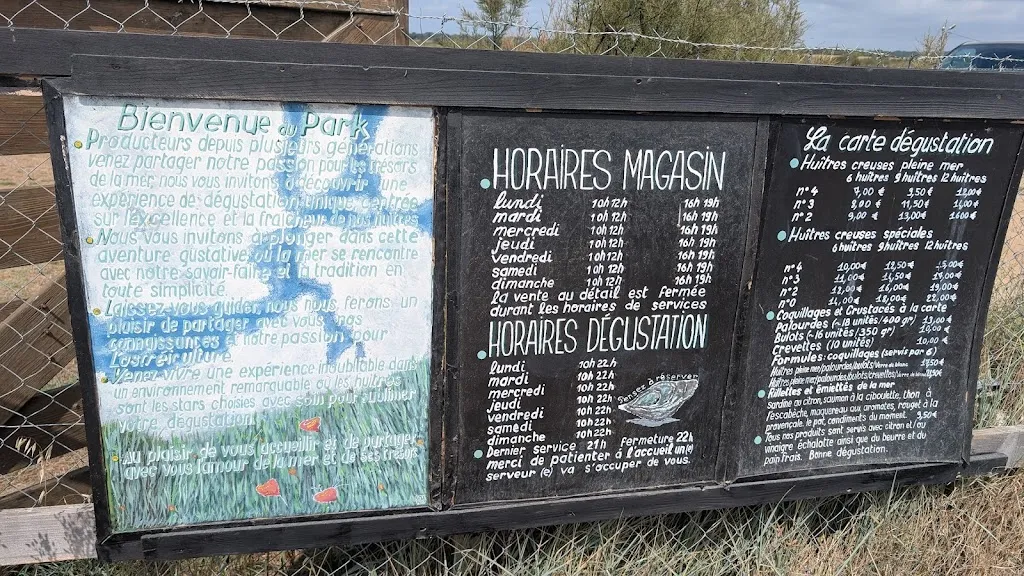 Bienvenue au Park
Producteurs depuis plusieurs générations
venez partager notre passion pour les trésors
de la mer, nous vous invitons à découvrir une
expérience de dégustation unique centrée
sur l'excellence et la fraîcheur de nos huîtres
Nous vous invitons à plonger dans cette
aventure gustative où la mer se rencontre
avec notre savoir-faire et la tradition en
toute simplicité
Laissez-vous guider, nous nous ferons un
plaisir de partager avec vous nos
connaissances et notre passion pour
l'ostréiculture.
Venez vivre une expérience inoubliable dans
un environnement remarquable où les huîtres
sont les stars choisies avec soin pour
Au plaisir de vous accueillir et de partager
avec vous l'amour de la mer et de ses trésors
HORAIRES MAGASIN
lundi 10h 12h 16h 19h
mardi 10h 12h 16h 19h
mercredi 10h 12h 16h 19h
jeudi 10h 12h 16h 19h
vendredi 10h 12h 16h 19h
samedi 10h 12h 16h 19h
dimanche 10h 12h 16h 19h
la vente au détail est fermée
durant les horaires de services
HORAIRES DÉGUSTATION
lundi 10h 22h
mardi 10h 22h
mercredi 10h 22h
jeudi 10h 22h
vendredi 10h 22h
samedi 10h 22h
dimanche 10h 22h
Pensez à réserver
Dernier service 21h fermeture 22h
merci de patienter à l'accueil un(e)
serveur (e) va s'occuper de vous.
La carte dégustation
Huîtres creuses pleine mer
6 huîtres 9 huîtres 12 huîtres
n°4 7,00 € 9,50 €
n°3 8,00 € 11,50 €
n°2 9,00 € 13,00 € 16,00 €
Huîtres creuses spéciales
6 huîtres 9 huîtres 12 huîtres
n°4 10,00€ 12,50€ 15,00€
n°3
n°2
n°0 14,00€ 18,00€ 22,00€
Coquillages et Crustacés à la carte
Palourdes (~18 unités/400 gr)
Bulots (~16 unités/350 gr) 10,00€
Crevettes (10 unités) 10,00€
Formules: coquillages (servis par 6)
Rillettes et émiettés de la mer
sardine au citron, saumon à la ciboulette, thon à
l'escabèche, maquereau aux aromates, rouget à la
provençale, le pot, condiments du moment. 9,50€
Tous nos produits sont servis avec citron et/ou
vinaigre échalotte ainsi que du beurre et du
pain frais. Bonne dégustation.